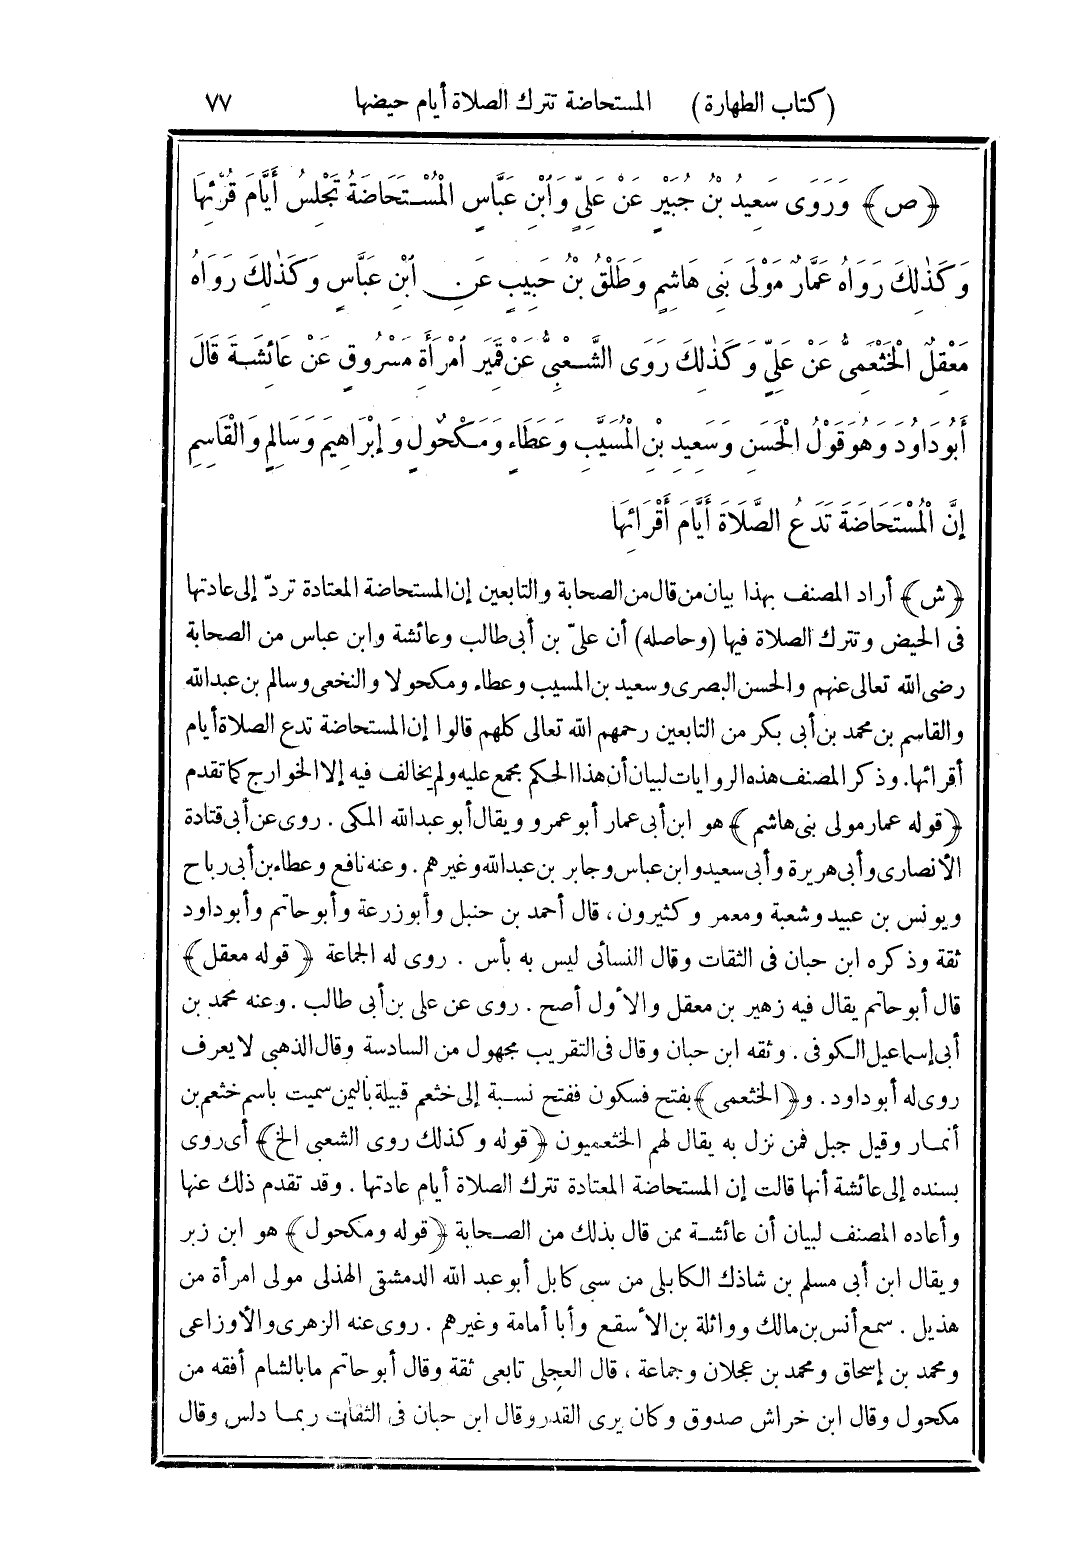 (كتاب الطهارة) المستحاضة تترك الصلاة أيام حيضها ٧٧
﴿ص﴾ وَرَوَى سَعِيدُ بْنُ جُبَيْرٍ عَنْ عَلِيٍّ وَٱبْنِ عَبَّاسٍ الْمُسْتَحَاضَةُ تَجْلِسُ أَيَّامَ قُرْئِهَا
وَكَذٰلِكَ رَوَاهُ عَمَّارٌ مَوْلَى بَنِى هَاشِمٍ وَطَلْقُ بْنُ حَبِيبٍ عَنِ ٱبْنِ عَبَّاسٍ وَكَذٰلِكَ رَوَاهُ
مَعْقِلٌ الْخَثْعَمِىُّ عَنْ عَلِيٍّ وَكَذٰلِكَ رَوَى الشَّعْبِىُّ عَنْ قَمِيَر ٱمْرَأَةِ مَسْرُوقٍ عَنْ عَائِشَةَ قَالَ
أَبُو دَاوُدَ وَهُوَ قَوْلُ الْحَسَنِ وَسَعِيدِ بْنِ الْمُسَيَّبِ وَعَطَاءٍ وَمَكْحُولٍ وَإِبْرَاهِيمَ وَسَالِمٍ وَالْقَاسِمِ
إِنَّ الْمُسْتَحَاضَةَ تَدَعُ الصَّلَاةَ أَيَّامَ أَقْرَائِهَا
﴿ش﴾ أراد المصنف بهذا بيان من قال من الصحابة والتابعين إن المستحاضة المعتادة تردّ إلى عادتها
فى الحيض وتترك الصلاة فيها (وحاصله) أن علىّ بن أبى طالب وعائشة وابن عباس من الصحابة
رضى الله تعالى عنهم والحسن البصرى وسعيد بن المسيب وعطاء ومكحولا والنخعى وسالم بن عبد الله
والقاسم بن محمد بن أبى بكر من التابعين رحمهم الله تعالى كلهم قالوا إن المستحاضة تدع الصلاة أيام
أقرائها. وذكر المصنف هذه الروايات لبيان أن هذا الحكم مجمع عليه ولم يخالف فيه إلا الخوارج كما تقدم
﴿قوله عمار مولى بنى هاشم﴾ هو ابن أبى عمار أبو عمرو ويقال أبو عبد الله المكى . روى عن أبى قتادة
الأنصارى وأبى هريرة وأبى سعيد وابن عباس وجابر بن عبد الله وغيرهم . وعنه نافع وعطاء بن أبى رباح
ويونس بن عبيد وشعبة ومعمر وكثيرون ، قال أحمد بن حنبل وأبو زرعة وأبو حاتم وأبو داود
ثقة وذكره ابن حبان فى الثقات وقال النسائى ليس به بأس . روى له الجماعة ﴿قوله معقل﴾
قال أبو حاتم يقال فيه زهير بن معقل والأول أصح . روى عن على بن أبى طالب . وعنه محمد بن
أبى إسماعيل الكوفى . وثقه ابن حبان وقال فى التقريب مجهول من السادسة وقال الذهبى لا يعرف
روى له أبو داود . و﴿الخثعمى﴾ بفتح فسكون ففتح نسبة إلى خثعم قبيلة باليمن سميت باسم خثعم بن
أنمار وقيل جبل فمن نزل به يقال لهم الخثعميون ﴿قوله وكذلك روى الشعبى الخ﴾ أى روى
بسنده إلى عائشة أنها قالت إن المستحاضة المعتادة تترك الصلاة أيام عادتها . وقد تقدم ذلك عنها
وأعاده المصنف لبيان أن عائشة ممن قال بذلك من الصحابة ﴿قوله ومكحول﴾ هو ابن زبر
ويقال ابن أبى مسلم بن شاذك الكابلى من سبى كابل أبو عبد الله الدمشقى الهذلى مولى امرأة من
هذيل . سمع أنس بن مالك وواثلة بن الأسقع وأبا أمامة وغيرهم . روى عنه الزهرى والأوزاعى
ومحمد بن إسحاق ومحمد بن عجلان وجماعة ، قال العجلى تابعى ثقة وقال أبو حاتم ما بالشام أفقه من
مكحول وقال ابن خراش صدوق وكان يرى القدر وقال ابن حبان فى الثقات ربما دلس وقال